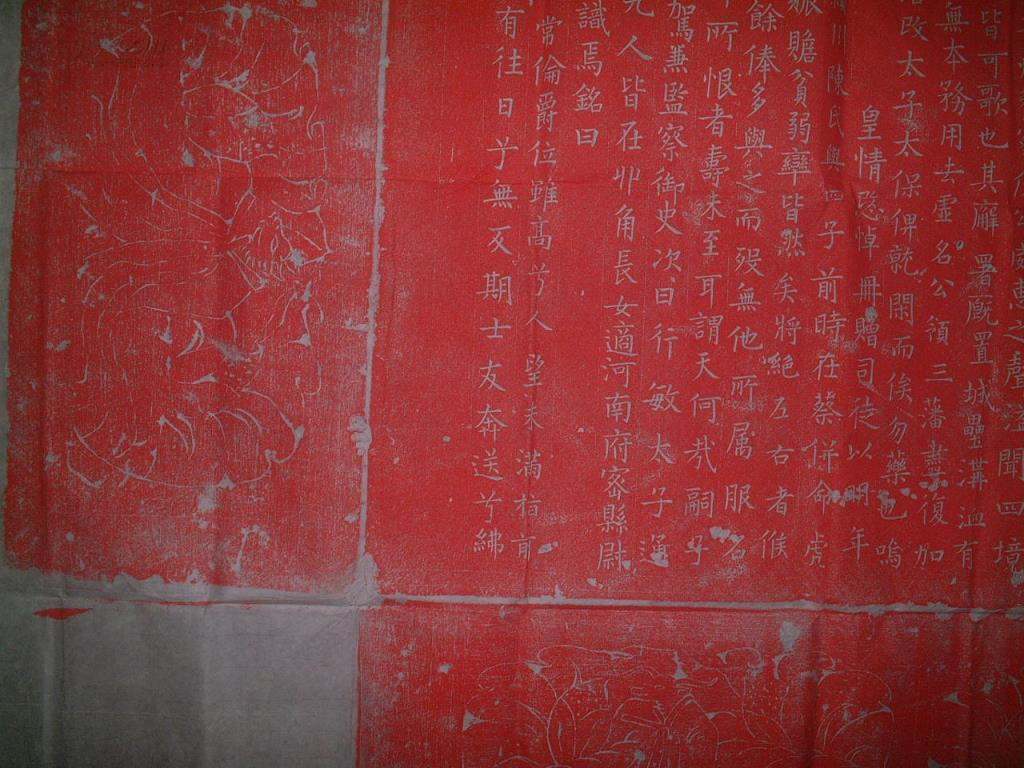 聲益聞四境
皆可歌也其廨署厩置城壘溝洫有
無本務用去虛名公領三藩書復加
改太子太保俾乾閑而俟勿藥也嗚
皇情怒悼冊贈司徒以明年
川陳氏與四子前時在蔡併命虎
賑贍貧弱率皆然矣將絕左右者候
餘俸多與之而歿無他所属服名
所恨者壽未至耳謂天何哉嗣子
駕兼監察御史次曰行敏太子通
人皆在丱角長女適河南府密縣尉
識焉銘曰
常倫爵位雖高兮人望未滿
有往日兮無反期士友奔送兮紼